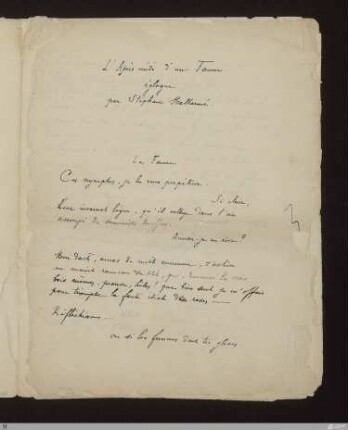 L'Après-midi d'un Faune
églogue
par Stéphane Mallarmé
Le Faune
Ces nymphes, je les veux perpétuer.
Si clair,
Leur incarnat léger, qu'il voltige dans l'air
assoupi de sommeils touffus.
Aimai-je un rêve?
Mon doute, amas de nuit ancienne, s'achève
en maint rameau subtil, qui, demeuré les vrais
bois mêmes, prouve, hélas! que bien seul je m'offrais
pour triomphe la faute idéale de roses —
Réfléchissons...
ou si les femmes dont tu gloses